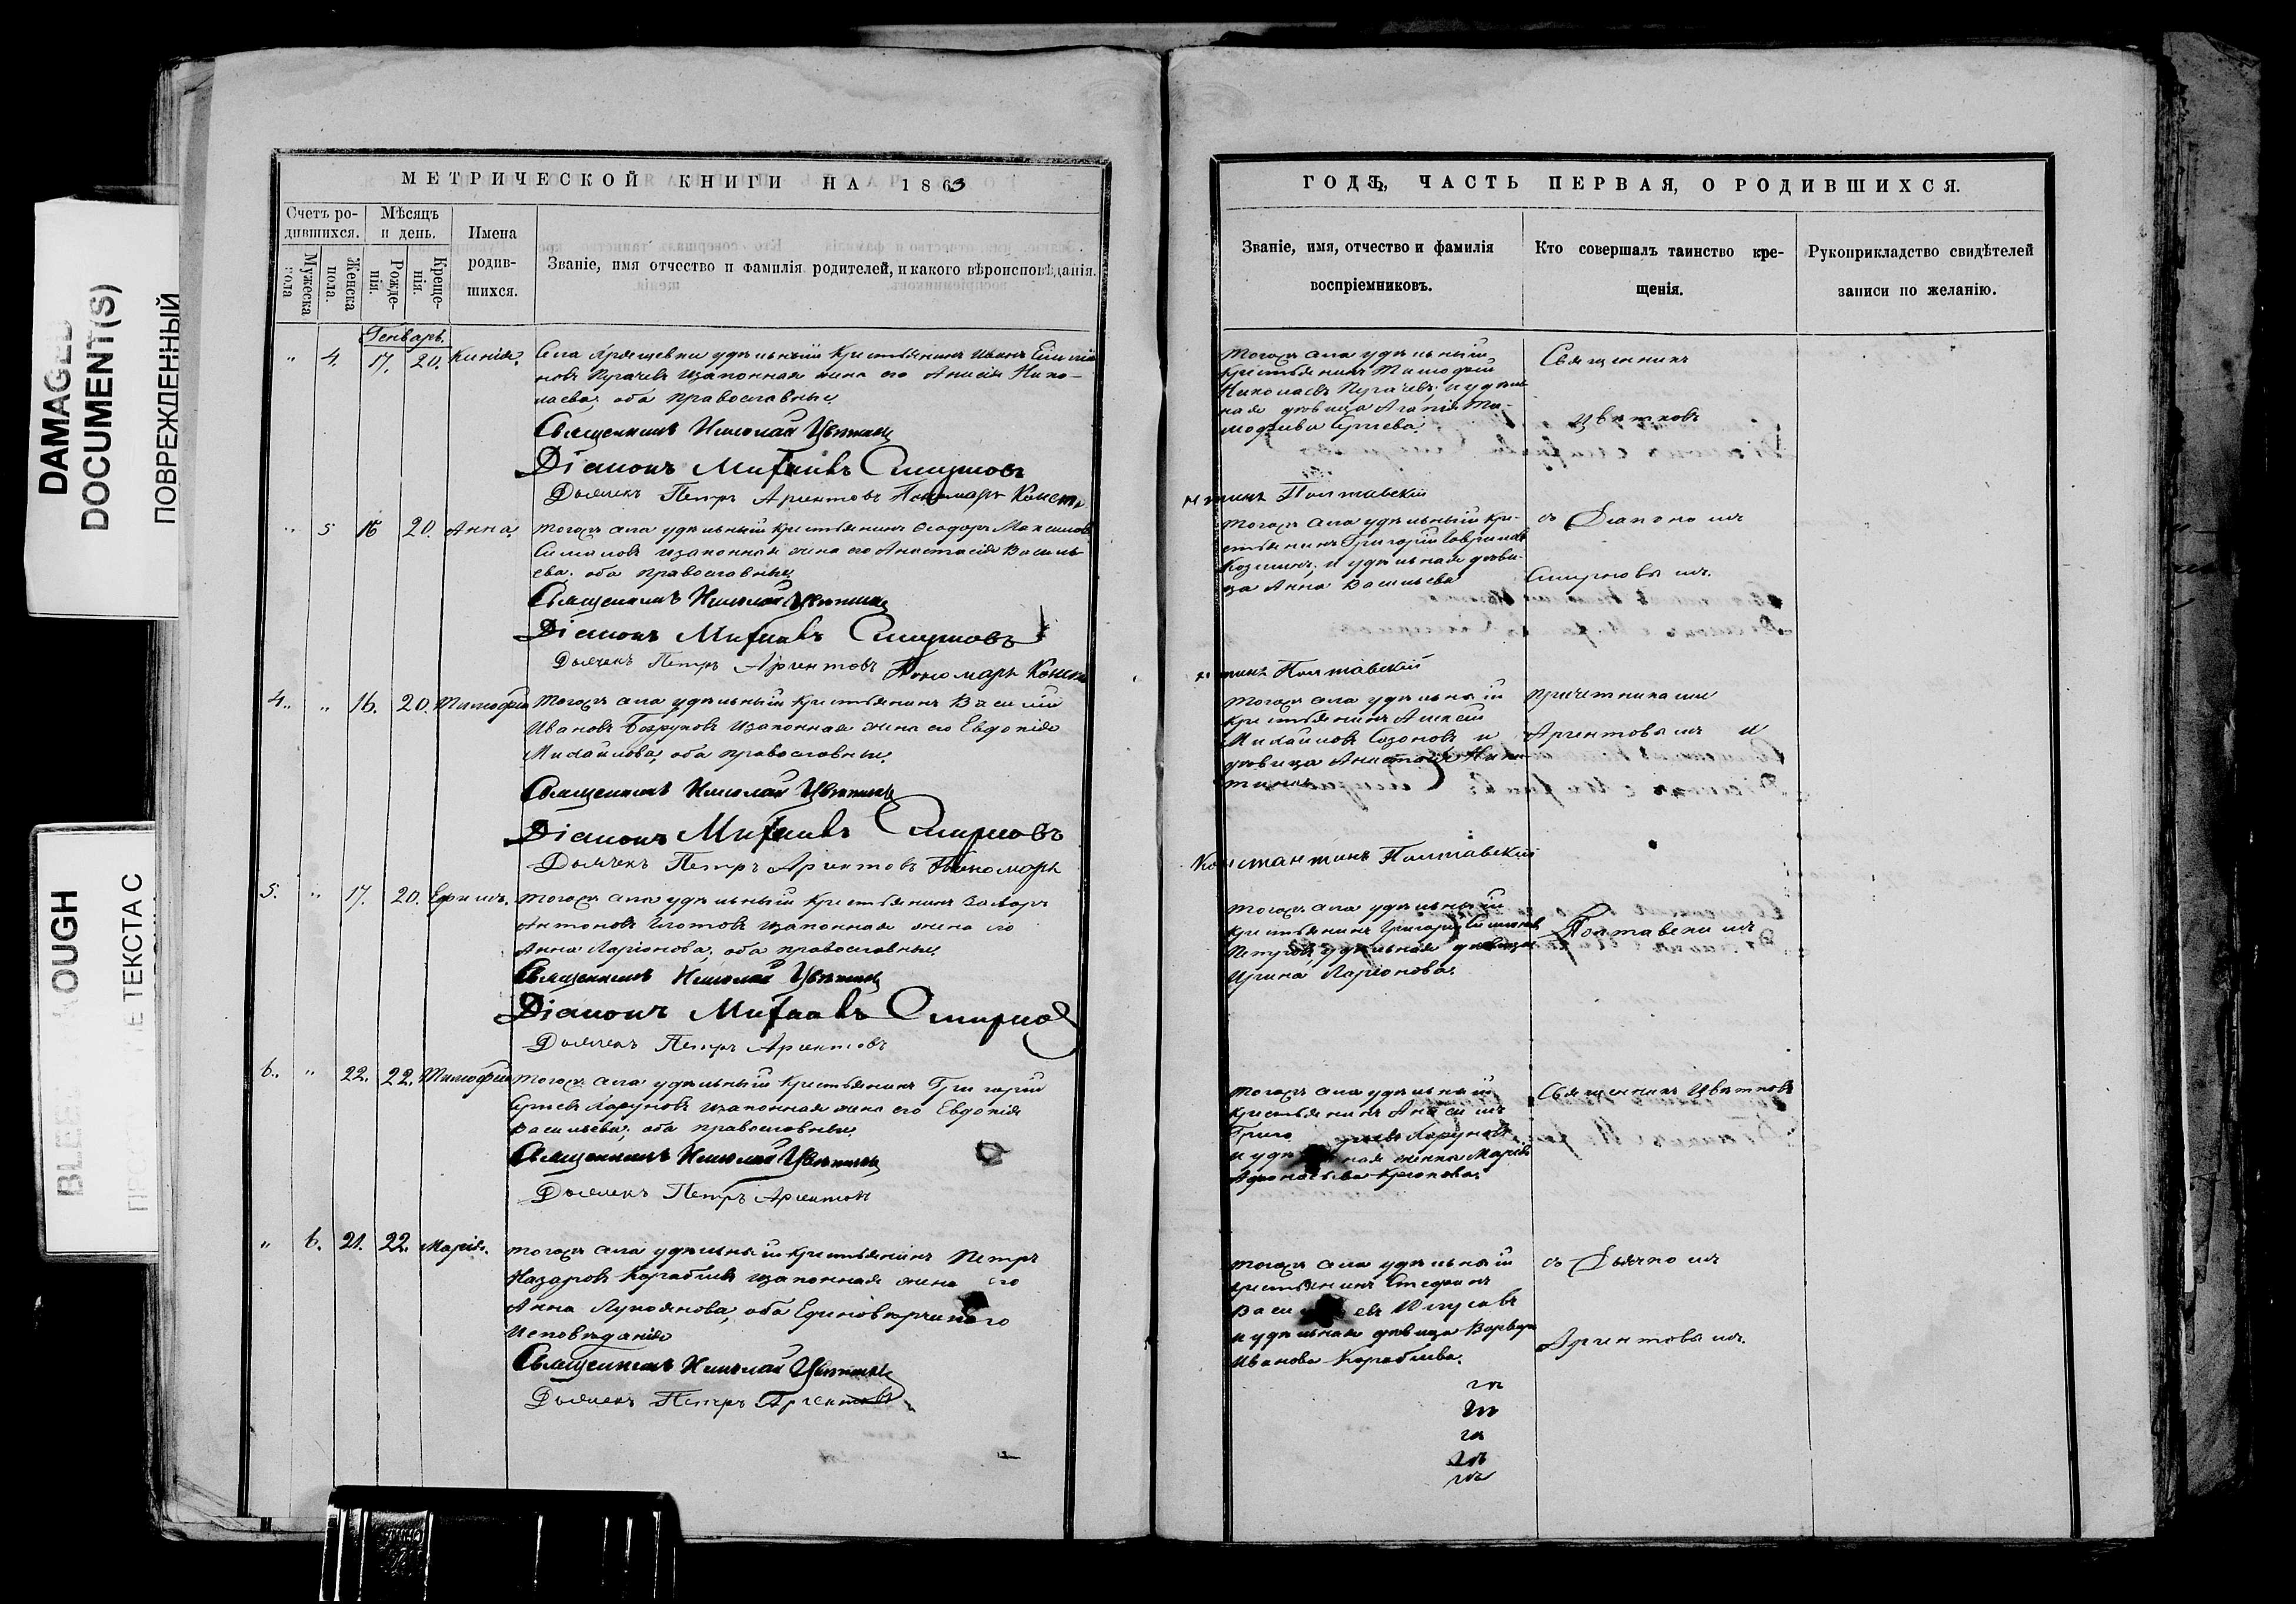 DAMAGED
DOCUMENT(S)
ПОВРЕЖДЕННЫЙ
OUGH
ТЕКСТА С
МЕТРИЧЕСКОЙ КНИГИ НА 1863
Счетъ ро-
дившихся.
Мужеска
пола
Женска
пола.
Мѣсяцъ
и день.
Рожде-
нія.
Креще-
нія.
Имена
родив-
шихся.
Званіе, имя отчество и фамилія родителей, и какого вѣроисповѣданія.
Генварь.
" 4. 17. 20.
Села удѣльный крестьянинъ Иванъ
новъ Пугачевъ изаконная жена его Анисія Нико-
лаева; оба православные
Священникъ Николай Цвѣтковъ
Діаконъ Михаилъ Смирновъ
Дьячекъ Петръ Аргентовъ Пономарь Конста
" 5 16 20. Анна.
Тогожъ села удѣльный крестьянинъ Ѳеодоръ Максимовъ
изаконная жена его Анастасія Василь-
ева; оба православные
Священникъ Николай Цвѣтковъ
Діаконъ Михаилъ Смирновъ
Дьячекъ Петръ Аргентовъ Пономарь Конста
4. " 16. 20. Тимофей
Тогожъ села удѣльный крестьянинъ Василій
Ивановъ изаконная жена его Евдокія
Михайлова; оба православные.
Священникъ Николай Цвѣтковъ
Діаконъ Михаилъ Смирновъ
Дьячекъ Петръ Аргентовъ Пономарь
5. " 17. 20. Ефимъ.
Тогожъ села удѣльный крестьянинъ
Антоновъ изаконная жена его
Анна Ларіонова; оба православные.
Священникъ Николай Цвѣтковъ
Діаконъ Михаилъ Смирновъ
Дьячекъ Петръ Аргентовъ
6. " 22. 22. Тимофей
Тогожъ села удѣльный крестьянинъ Григорій
изаконная жена его Евдокія
Васильева; оба православные.
Священникъ Николай Цвѣтковъ
Дьячекъ Петръ Аргентовъ
" 6. 21. 22. Марія.
Тогожъ села удѣльный крестьянинъ Петръ
Назаровъ Кораблевъ изаконная жена его
Анна Лукоянова; оба Единовѣрческаго
исповѣданія
Священникъ Николай Цвѣтковъ
Дьячекъ Петръ Аргентовъ
ГОДЪ, ЧАСТЬ ПЕРВАЯ, О РОДИВШИХСЯ.
Званіе, имя, отчество и фамилія
воспріемниковъ.
Кто совершалъ таинство кре-
щенія.
Рукоприкладство свидѣтелей
записи по желанію.
Тогожъ села удѣльный
крестьянинъ Тимофей
Николаевъ Пугачевъ; и удѣль
ная дѣвица Агапія Ти-
мофеева
Священникъ
Цвѣтковъ
нтинъ Полтавскій
Тогожъ села удѣльный кре-
стьянинъ Григорій Гавриловъ
Козминъ; и удѣльная дѣви-
ца Анна Васильева
съ Діакономъ
Смирновымъ.
нтинъ Полтавскій
Тогожъ села удѣльный
крестьянинъ Алексѣй
Михайловъ Сазоновъ и
дѣвица Анастасія Ники-
тина
причетниками
Аргентовымъ и
Константинъ Полтавскій
Тогожъ села удѣльный
крестьянинъ Григорій
удѣльная дѣвица
Ирина Ларіонова.
Полтавскимъ
Тогожъ села удѣльный
крестьянинъ
Григо
и удѣ ная женка Марія
Крюкова.
Священникъ Цвѣтковъ
Тогожъ села удѣльный
крестьянинъ Стефанъ
Васи евъ
и удѣльная дѣвица Варвара
Иванова Кораблева.
съ Дьячкомъ
Аргентовымъ.